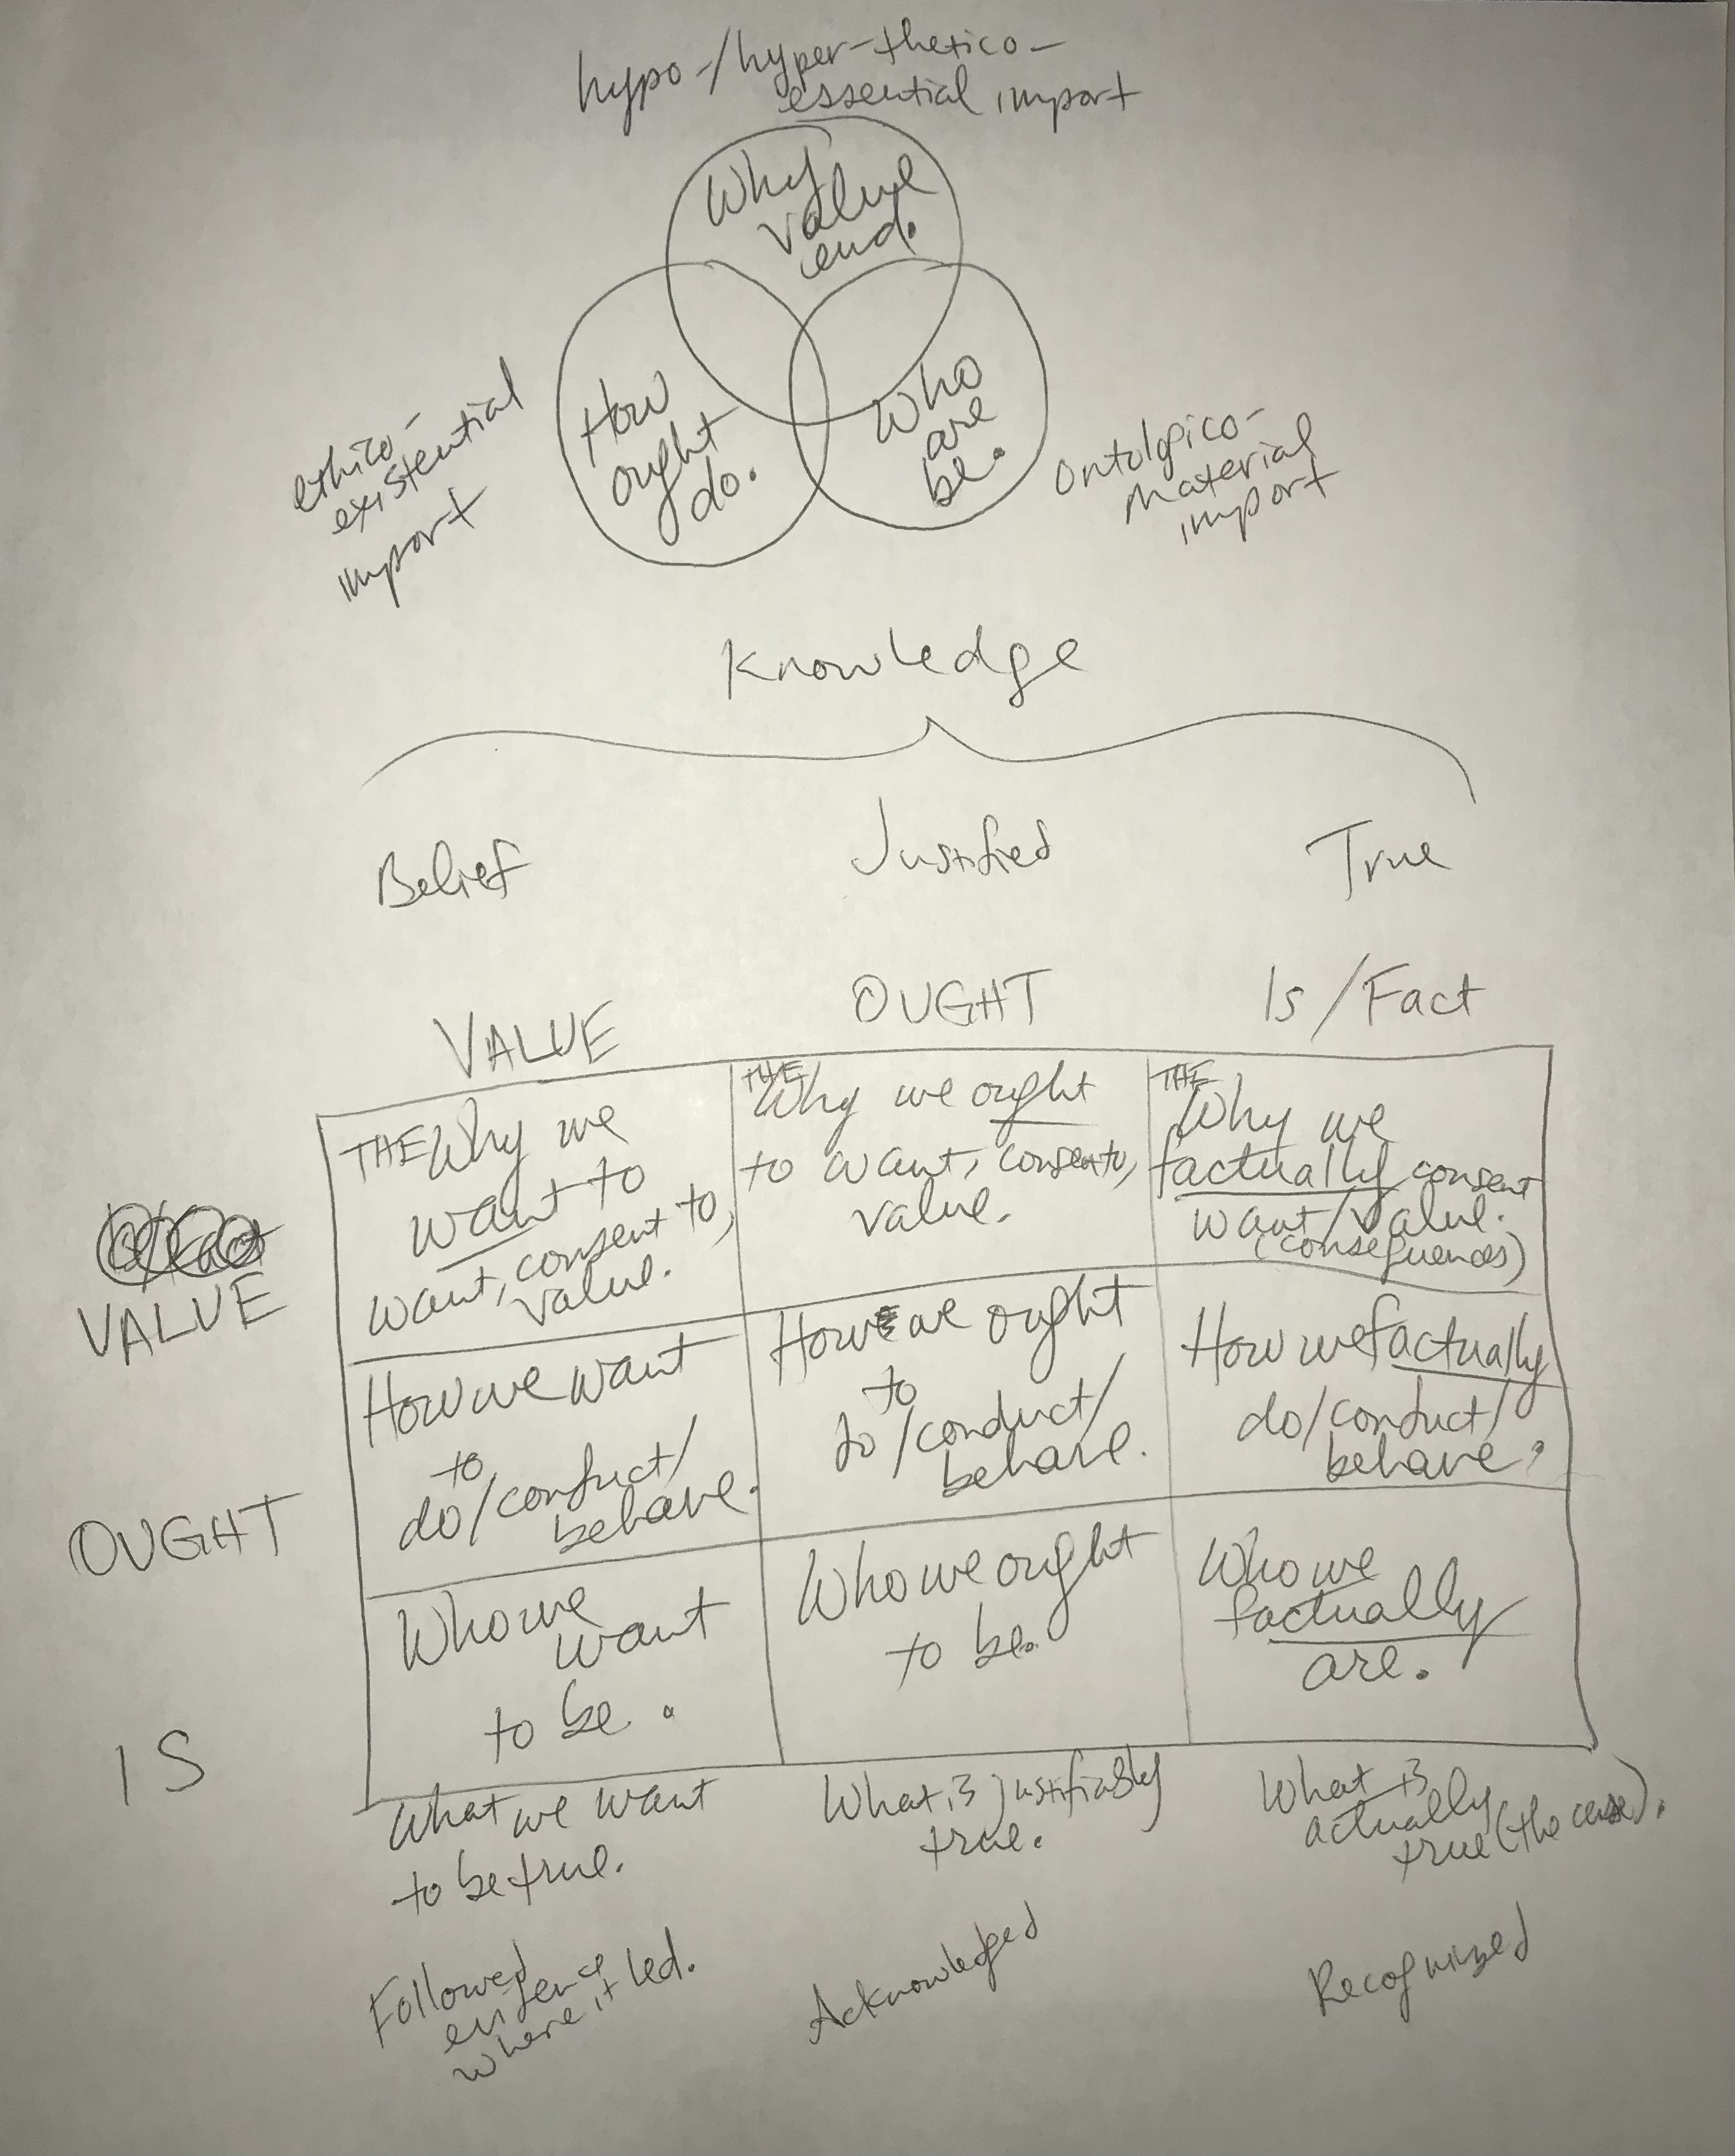 hypo-/hyper-thetico-
essential import
Why
value
end.
How
ought
do.
Who
are
be.
ethico-
existential
import
Ontologico-
material
import
Knowledge
Belief
Justified
True
VALUE
OUGHT
Is/Fact
VALUE
THE Why we
want to
want, consent to,
value.
THE
Why we ought
to want, consent to,
value.
THE
Why we
factually consent
want/value.
(consequences)
OUGHT
How we want
to
do/conduct/
behave.
How we ought
to
do/conduct/
behave.
How we factually
do/conduct/
behave.
IS
Who we
want
to be.
Who we ought
to be.
Who we
factually
are.
What we want
to be true.
What is justifiably
true.
What is
actually
true (the case).
Followed
evidence
where it led.
Acknowledged
Recognized